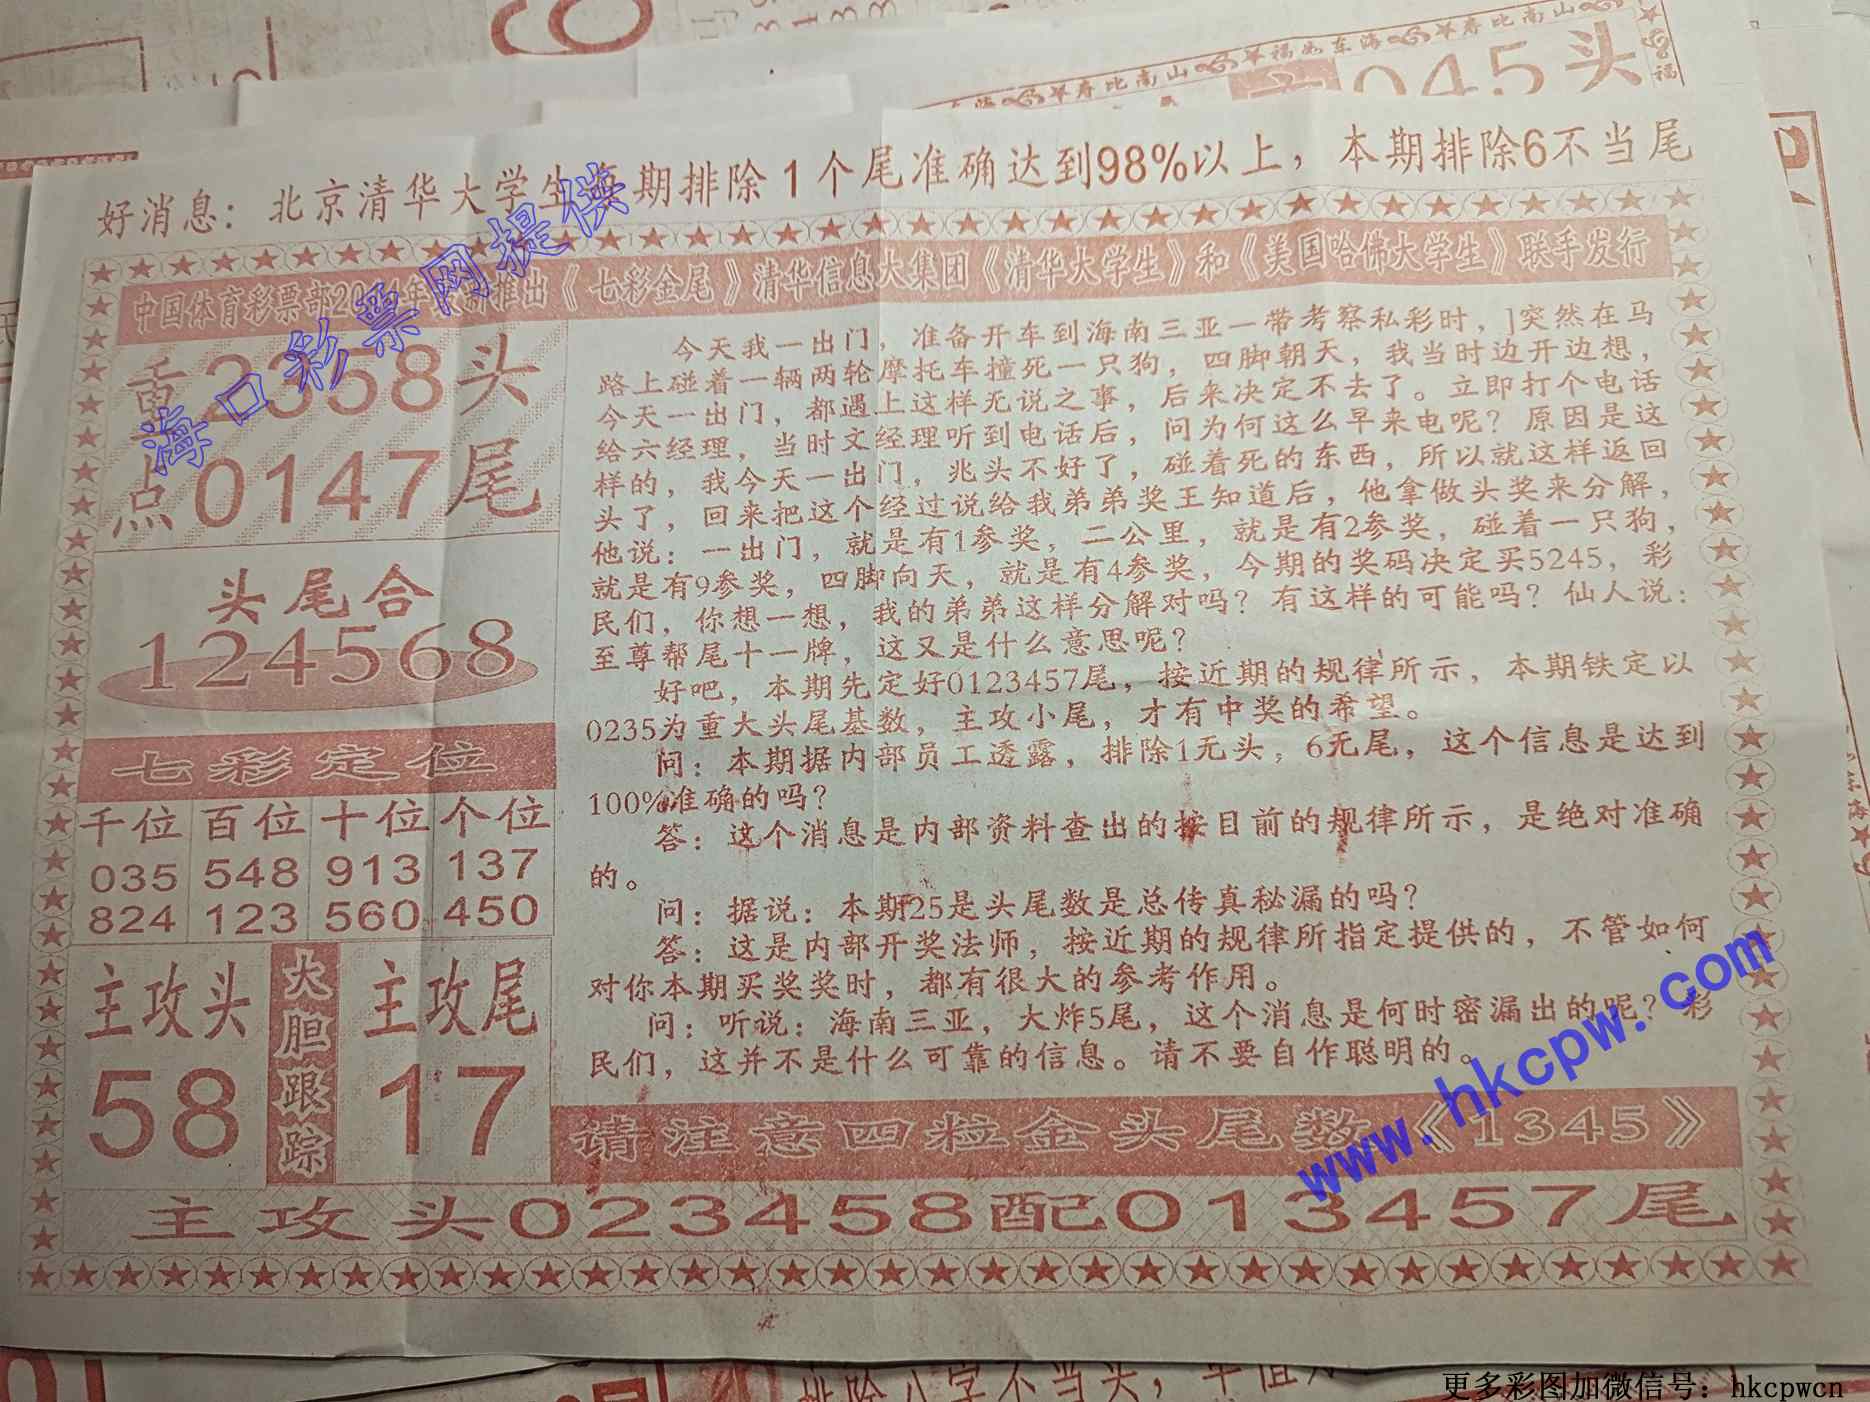 寿比南山 福如东海 寿比南山
福
045头
好消息：北京清华大学生每期排除1个尾准确达到98%以上，本期排除6不当尾
中国体育彩票部20 年 推出《七彩金尾》清华信息大集团《清华大学生》和《美国哈佛大学生》联手发行
重2358头
点0147尾
头尾合
124568
七彩定位
千位 百位 十位 个位
035 548 913 137
824 123 560 450
主攻头
58
大胆跟踪
主攻尾
17
今天我一出门，准备开车到海南三亚一带考察私彩时，]突然在马
路上碰着一辆两轮摩托车撞死一只狗，四脚朝天，我当时边开边想，
今天一出门，都遇上这样无说之事，后来决定不去了。立即打个电话
给六经理，当时文经理听到电话后，问为何这么早来电呢？原因是这
样的，我今天一出门，兆头不好了，碰着死的东西，所以就这样返回
头了，回来把这个经过说给我弟弟奖王知道后，他拿做头奖来分解，
他说：一出门，就是有1参奖，二公里，就是有2参奖，碰着一只狗，
就是有9参奖，四脚向天，就是有4参奖，今期的奖码决定买5245，彩
民们，你想一想，我的弟弟这样分解对吗？有这样的可能吗？仙人说：
至尊帮尾十一牌，这又是什么意思呢？
好吧，本期先定好0123457尾，按近期的规律所示，本期铁定以
0235为重大头尾基数，主攻小尾，才有中奖的希望。
问：本期据内部员工透露，排除1无头，6无尾，这个信息是达到
100%准确的吗？
答：这个消息是内部资料查出的按目前的规律所示，是绝对准确
的。
问：据说：本期25是头尾数是总传真秘漏的吗？
答：这是内部开奖法师，按近期的规律所指定提供的，不管如何
对你本期买奖奖时，都有很大的参考作用。
问：听说：海南三亚，大炸5尾，这个消息是何时密漏出的呢？彩
民们，这并不是什么可靠的信息。请不要自作聪明的。
请注意四粒金头尾数《1345》
主攻头023458配013457尾
海口彩票网提供
www.hkcpw.com
排除八字不当头，
更多彩图加微信号：hkcpwcn